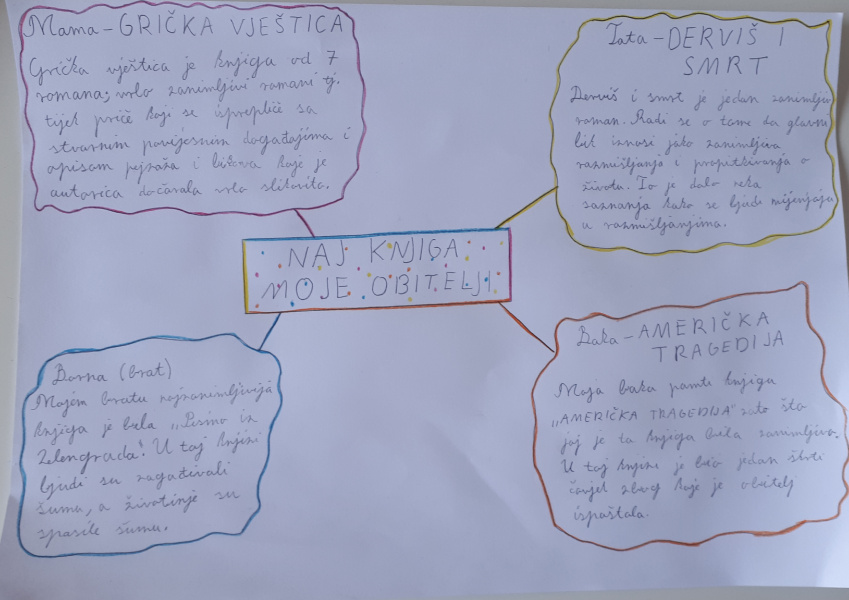 Mama - GRIČKA VJEŠTICA
Grička vještica je knjiga od 7
romana; vrlo zanimljivi romani tj.
tijek priče koji se isprepliće sa
stvarnim povijesnim događajima i
opisom pejzaža i likova koje je
autorica dočarala vrlo slikovito.
Tata - DERVIŠ I
SMRT
Derviš i smrt je jedan zanimljiv
roman. Radi se o tome da glavni
lik iznosi jako zanimljiva
razmišljanja i propitkivanja o
životu. To je dalo neka
saznanja kako se ljudi mijenjaju
u razmišljanjima.
NAJ KNJIGA
MOJE OBITELJI
Borna (brat)
Mojem bratu najzanimljivija
knjiga je bila „Pismo iz
Zelengrada". U toj knjizi
ljudi su zagađivali
šumu, a životinje su
spasile šumu.
Baka - AMERIČKA
TRAGEDIJA
Moja baka pamti knjigu
„AMERIČKA TRAGEDIJA" zato što
joj je ta knjiga bila zanimljiva.
U toj knjizi je bio jedan
čovjek zbog koje je obitelj
ispaštala.